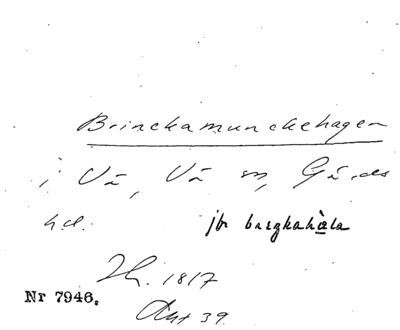 Brinckamunckehagen
i Vä, Vä sn, Gärds
hd. jfr bargkahàla
1817
Nr 7946.
Akt 39.